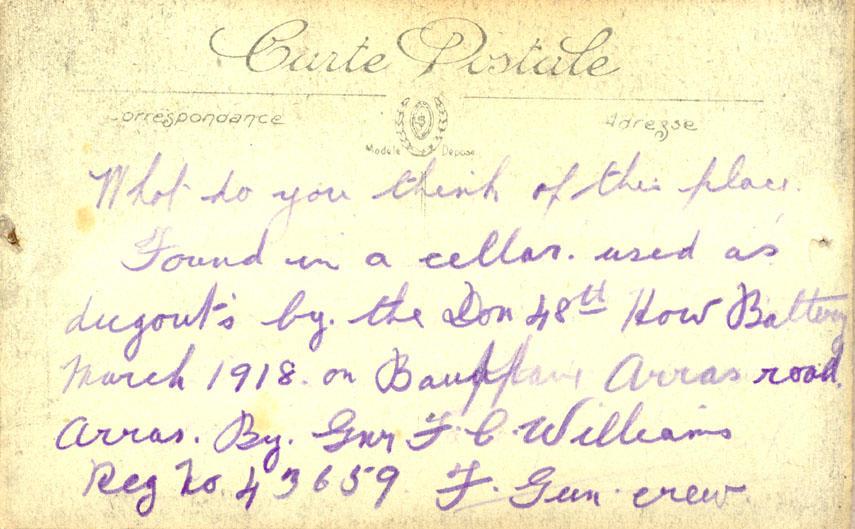 Carte Postale
Correspondance
Adresse
Modele Déposé
What do you think of this place.
Found in a cellar. used as
dugout's by. the Don 48th How Battery
March 1918. on Arras road.
Arras. By. Gnr F. C. Williams
Reg No. 43659. F. Gun. crew.